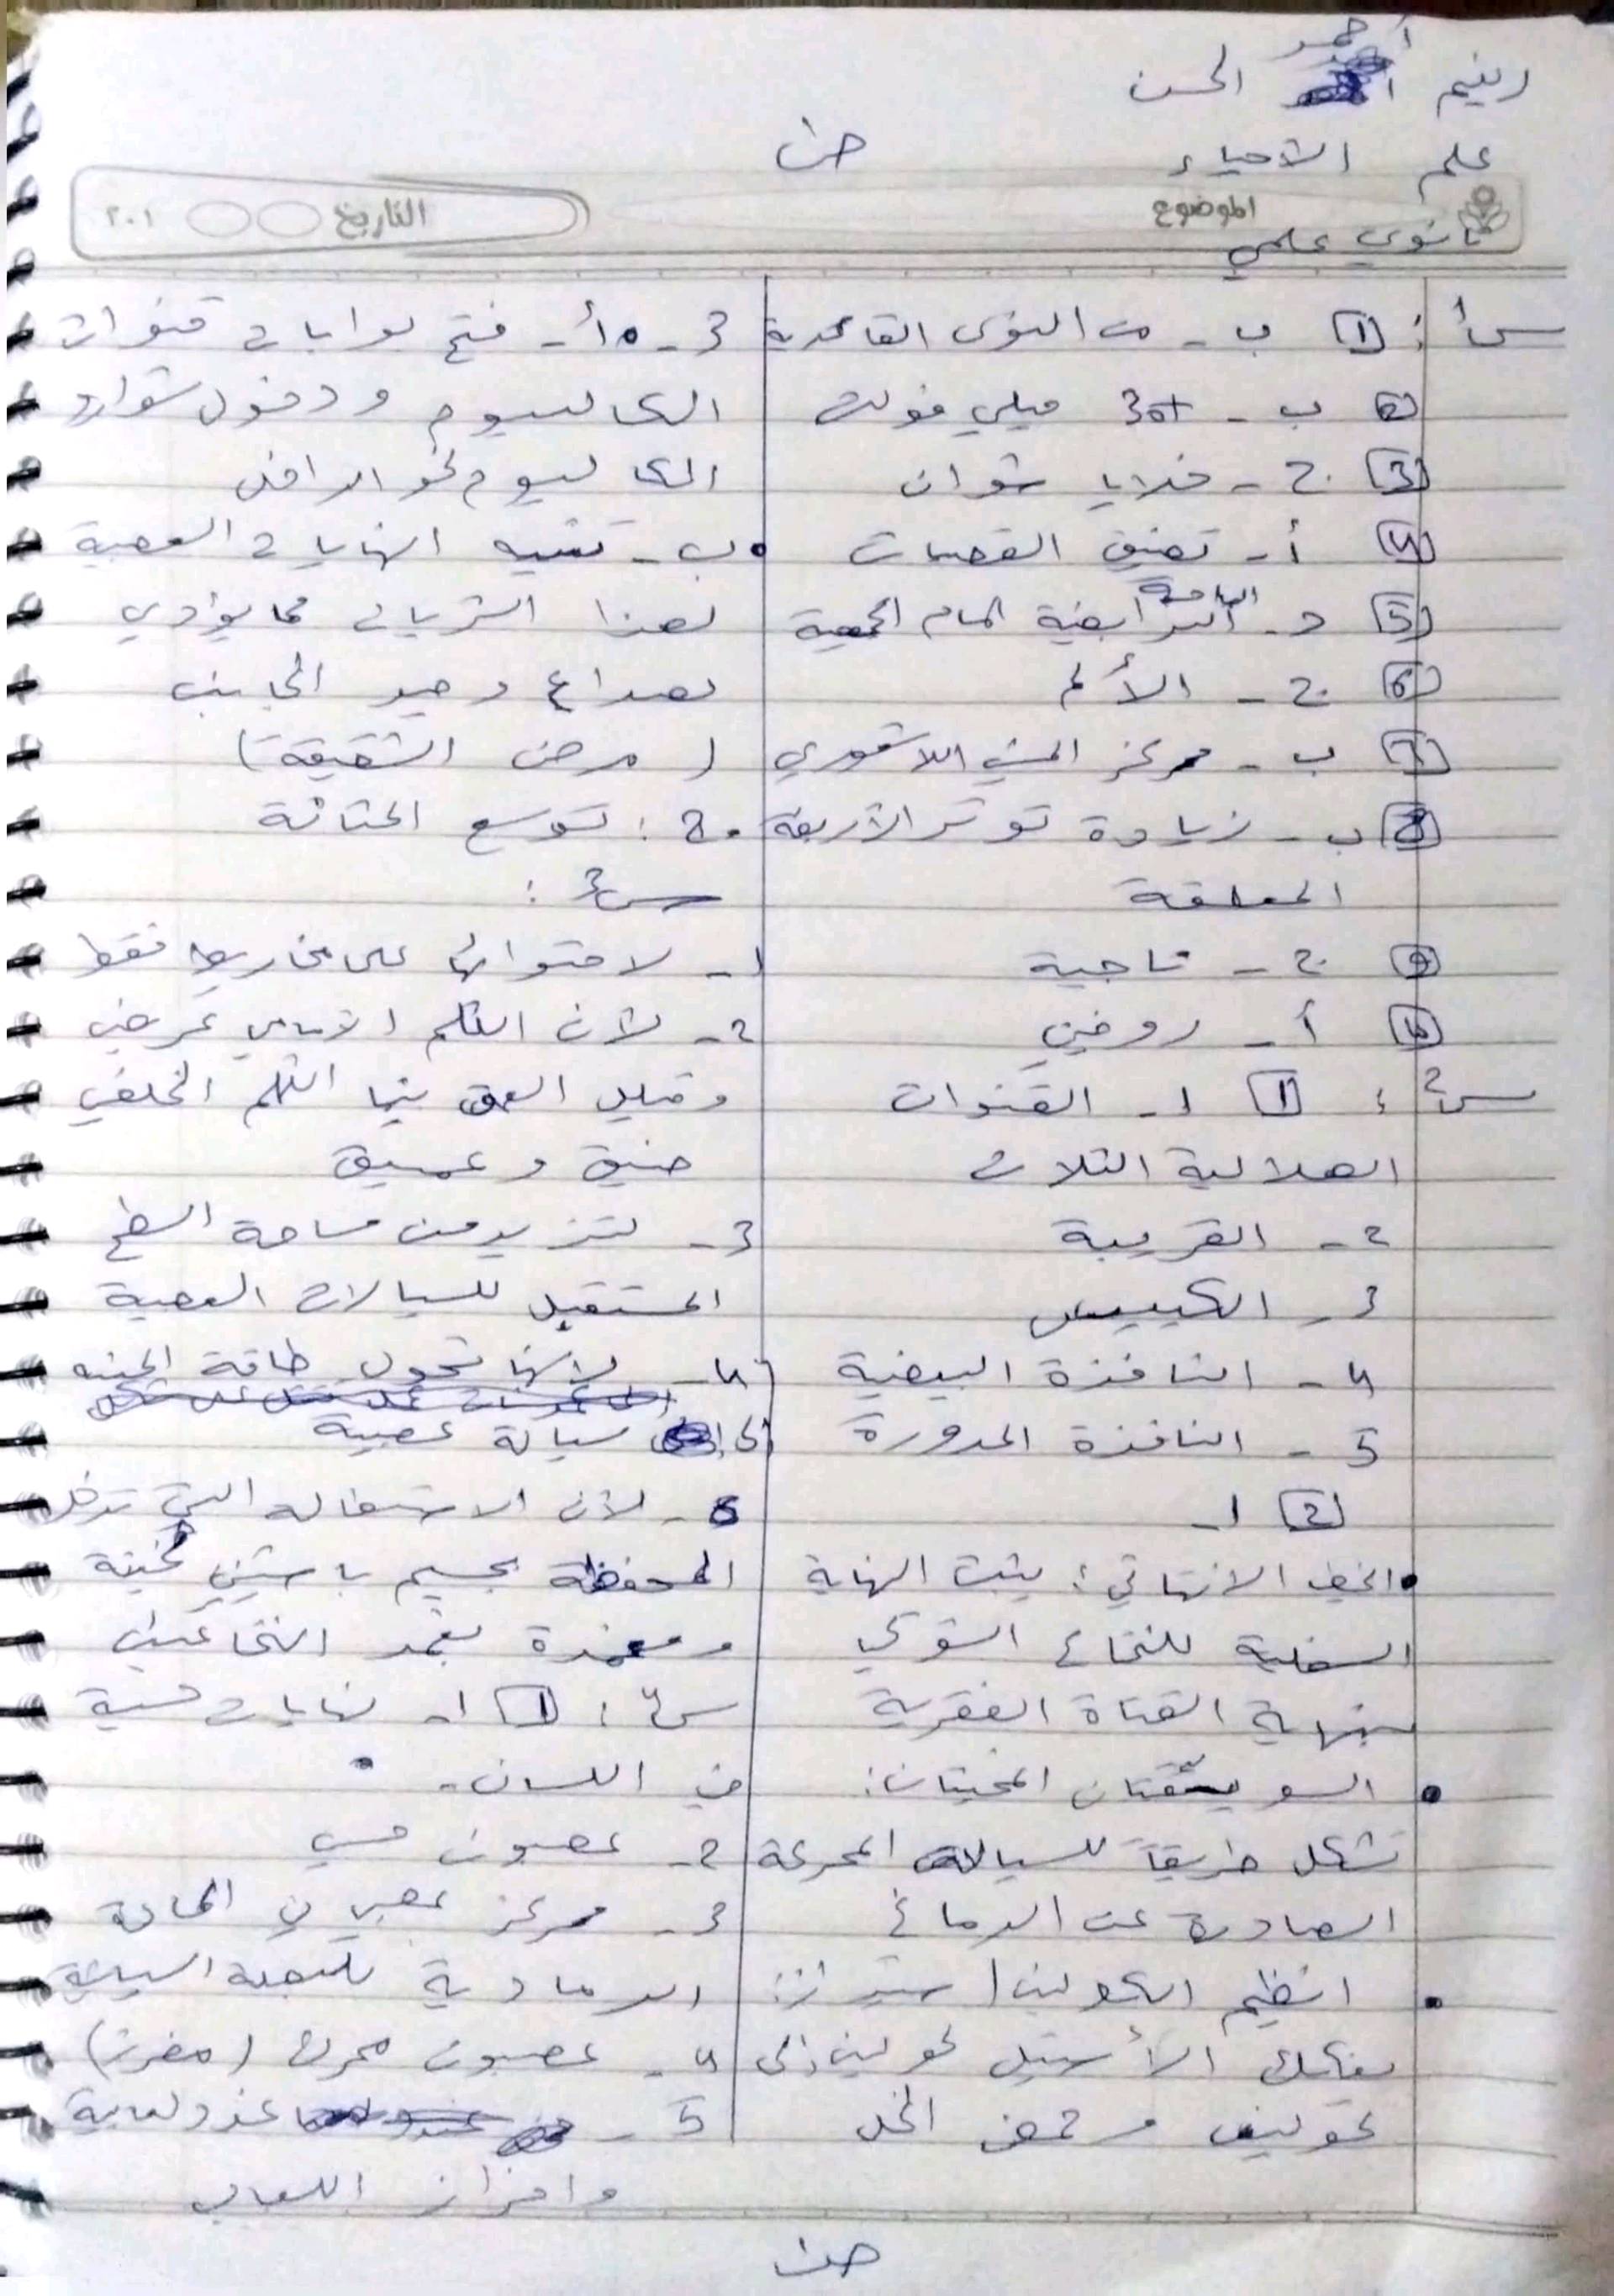 رنيم أحمد الحسن
علم الأحياء
الموضوع
التاريخ
٢٠١
ثانوي علمي
س١: [1] ب - من النوى القاعدية
[2] ب - +30 ميلي فولت
[3] ج - خلايا شوان
[4] أ - تضيق القصبات
[5] د - الباحة أمام الجبهية
[6] ج - الألم
[7] ب - مركز المشي اللاشعوري
[8] ب - زيادة توتر الأربطة
المعلقة
[9] ج - تاجية
[10] أ - روفيني
س٢: [1] 1- القنوات
الهلالية الثلاث
2- القريبة
3- الكييس
4- النافذة البيضية
5- النافذة المدورة
[2] 1-
• الخيط الانتهائي: يثبت النهاية
السفلية للنخاع الشوكي
بنهاية القناة الفقرية
• السويقتان المخيتان:
تشكل طريقاً للسيالة المحركة
الصادرة عن الدماغ
• انظيم الكولين استيراز:
يفكك الأستيل كولين إلى
كولين و حمض الخل
3- • أ - فتح بوابات قنوات
الكالسيوم ودخول شوارد
الكالسيوم نحو الداخل
• ب - تنبيه النهايات العصبية
لهذا الشريان مما يؤدي
لصداع وحيد الجانب
(مرض الشقيقة)
• ج: توسع المثانة
س٣:
1- لاحتوائها على مخاريط فقط
2- لأن الثلم الأمامي عريض
وقليل العمق بينما الثلم الخلفي
ضيق وعميق
3- لتزيد من مساحة السطح
المستقبل للسيالات العصبية
4- لأنها تحول طاقة المنبه
إلى سيالة عصبية
5- لأن الاستطالة التي تدخل
المحفظة بجسيم باشيني ثخينة
ومغمدة بغمد النخاعين
س٤: [1] 1- نهايات حسية
في اللسان.
2- عصبون حسي
3- مركز عصبي في المادة
الرمادية للبصلة السيسائية
4- عصبون محرك (مفرز)
5- غدد لعابية
وإفراز اللعاب